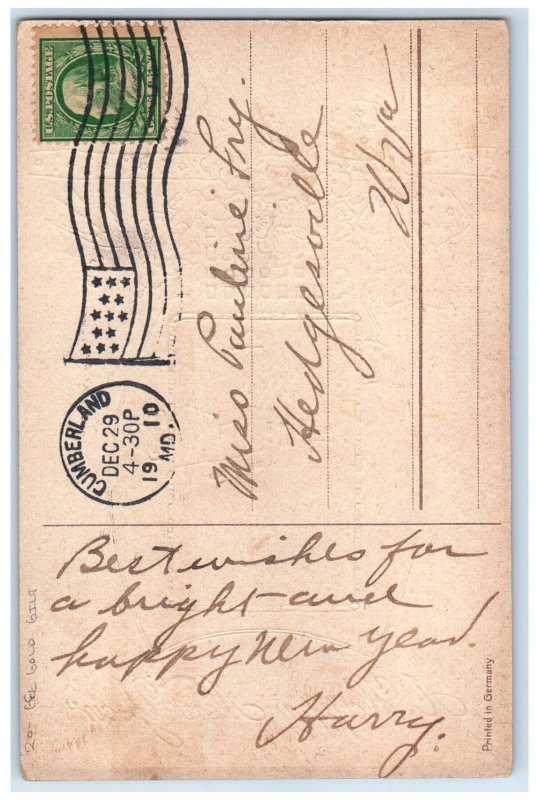 Best wishes for
a bright and
happy New Year!
Harry.
CUMBERLAND
DEC 29
4-30P
19 10
MD.
U.S. POSTAGE
Miss Pauline Fry.
Hedgesville
W Va
Printed in Germany
20- GOLD GILT